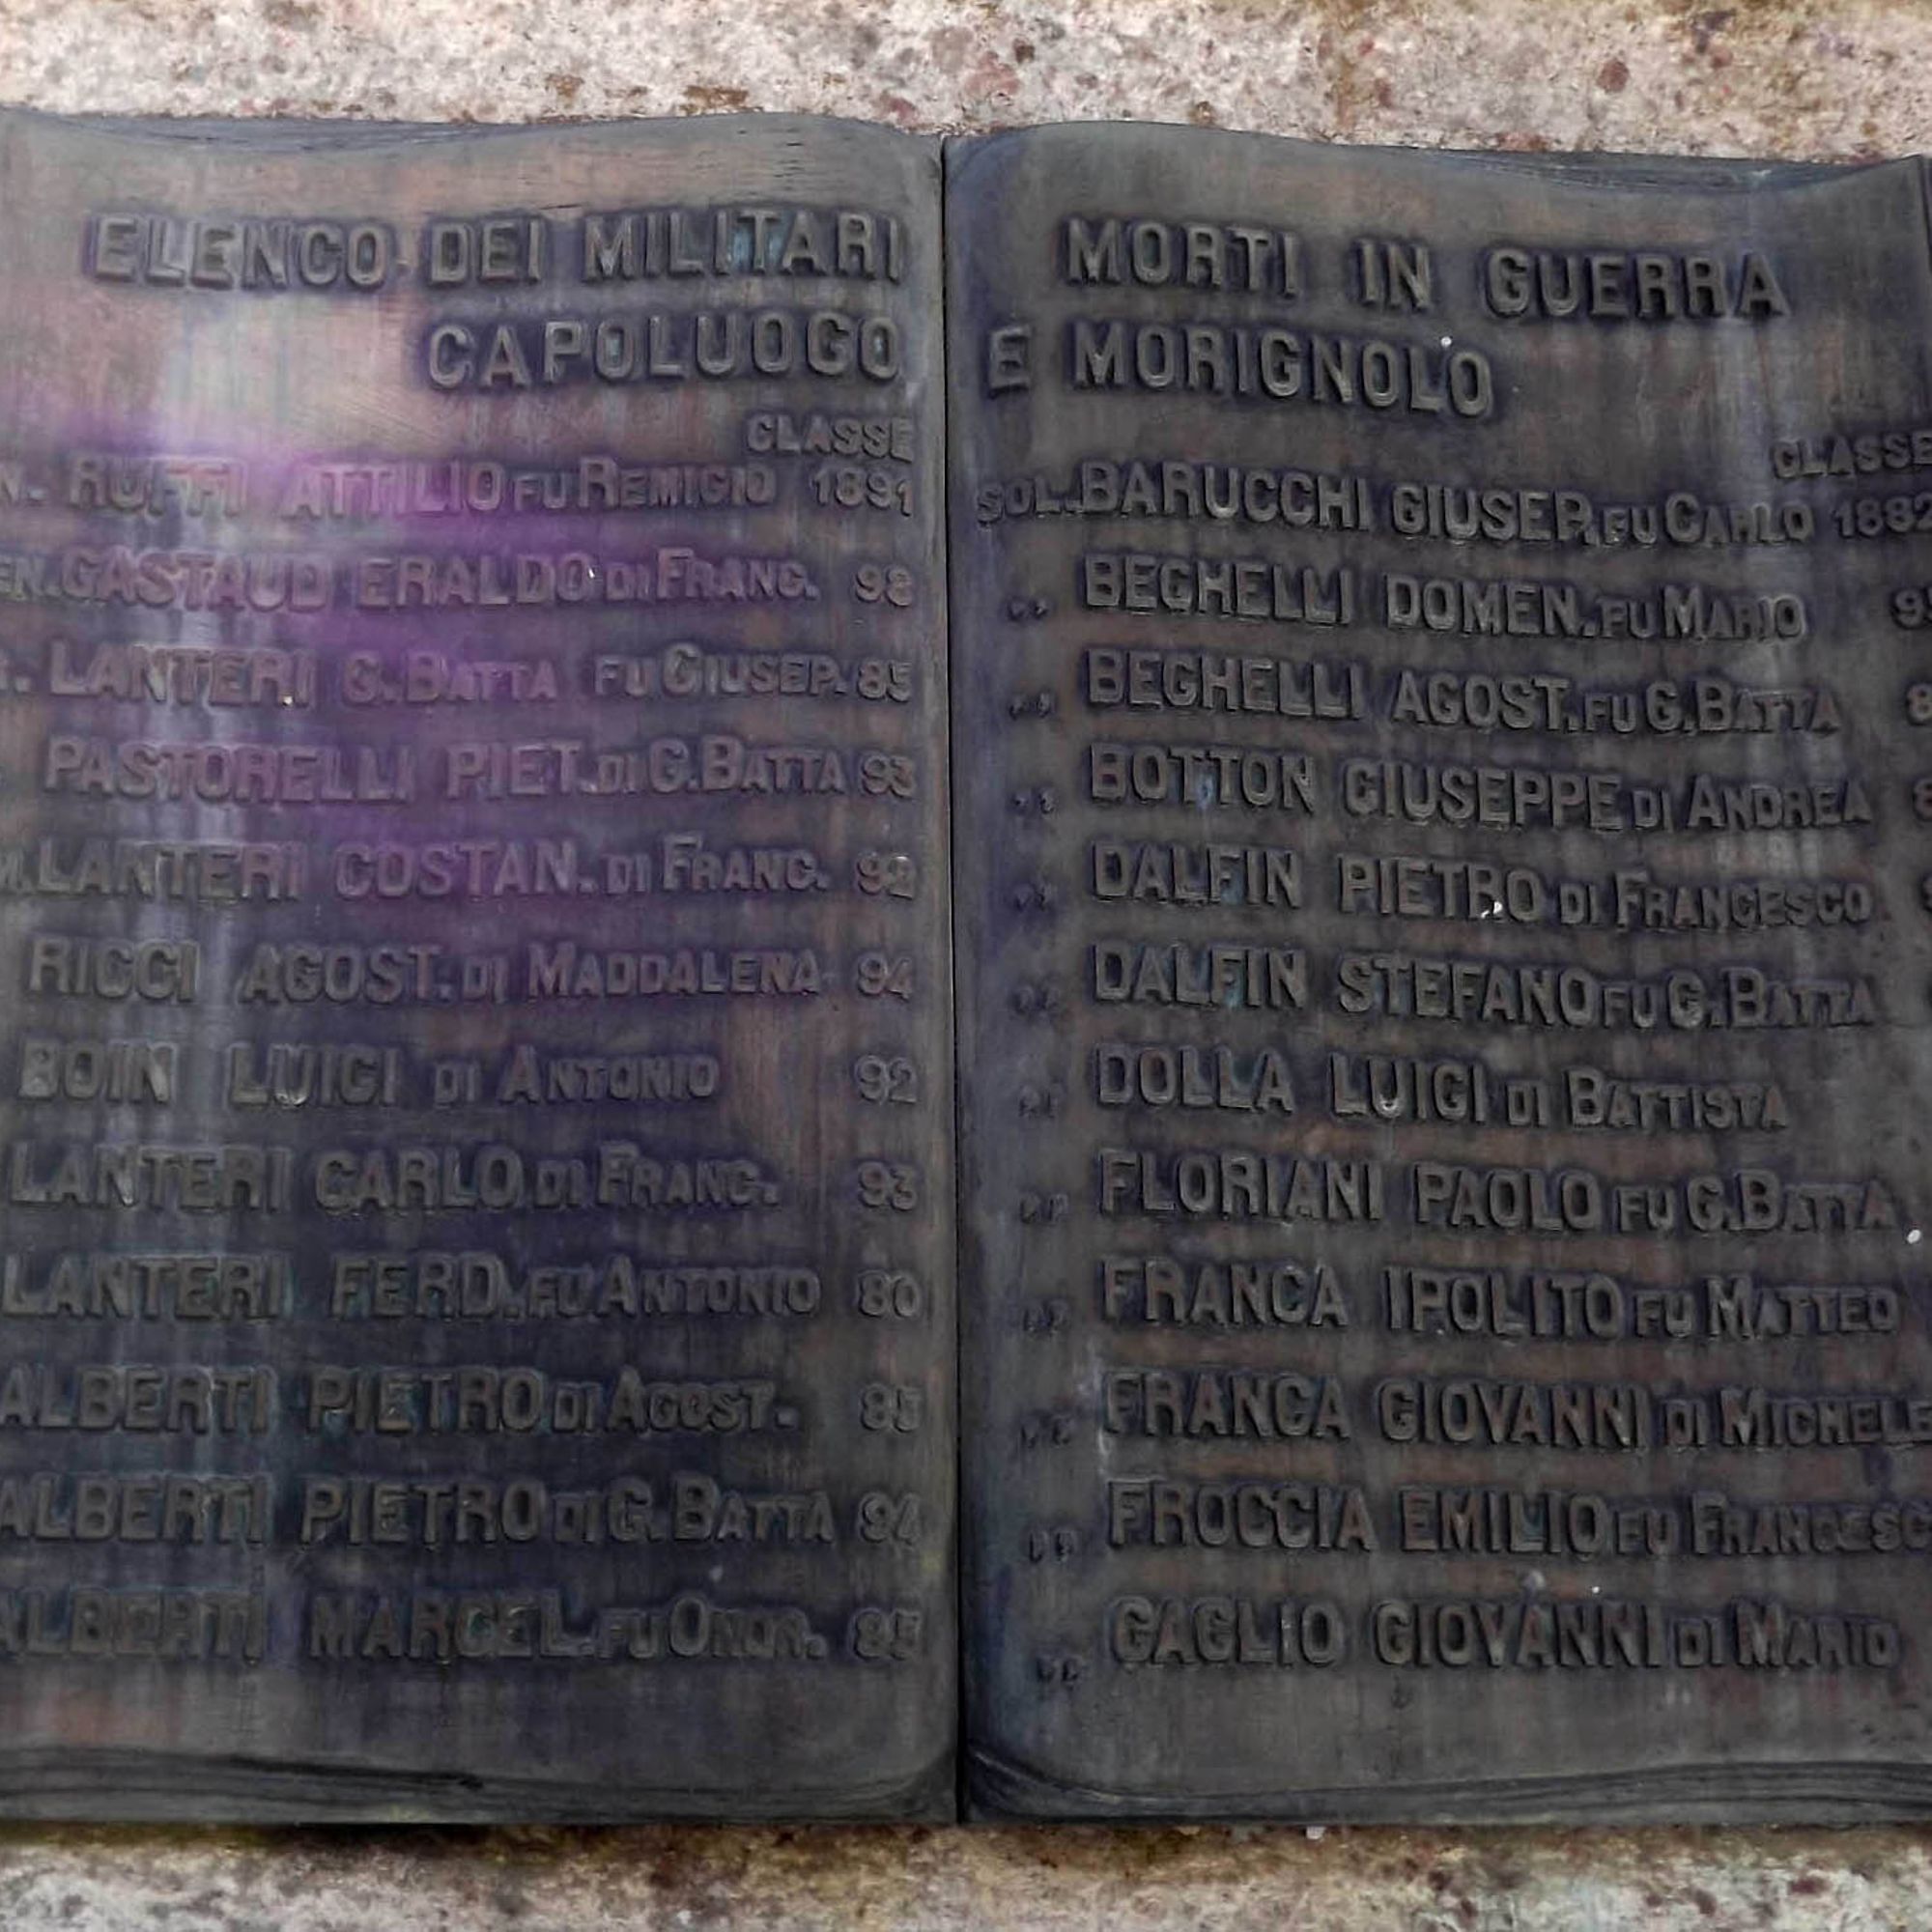 ELENCO DEI MILITARI
CAPOLUOGO
CLASSE
RUFFI ATTILIO FU REMIGIO 1891
GASTAUD ERALDO DI FRANC. 98
LANTERI G. BATTA FU GIUSEP. 85
PASTORELLI PIET. DI G. BATTA 93
LANTERI COSTAN. DI FRANC. 92
RICCI AGOST. DI MADDALENA 94
BOIN LUIGI DI ANTONIO 92
LANTERI CARLO DI FRANC. 93
LANTERI FERD. FU ANTONIO 80
ALBERTI PIETRO DI AGOST.
ALBERTI PIETRO DI G. BATTA 94
ALBERTI MARCEL. FU ONOR. 85
MORTI IN GUERRA
E MORIGNOLO
CLASSE
SOL. BARUCCHI GIUSEP. FU CARLO 1882
" BEGHELLI DOMEN. FU MARIO
" BEGHELLI AGOST. FU G. BATTA
" BOTTON GIUSEPPE DI ANDREA
" DALFIN PIETRO DI FRANCESCO
" DALFIN STEFANO FU G. BATTA
" DOLLA LUIGI DI BATTISTA
" FLORIANI PAOLO FU G. BATTA
" FRANCA IPOLITO FU MATTEO
" FRANCA GIOVANNI DI MICHELE
" FROCCIA EMILIO FU FRANCESC
" GAGLIO GIOVANNI DI MARIO